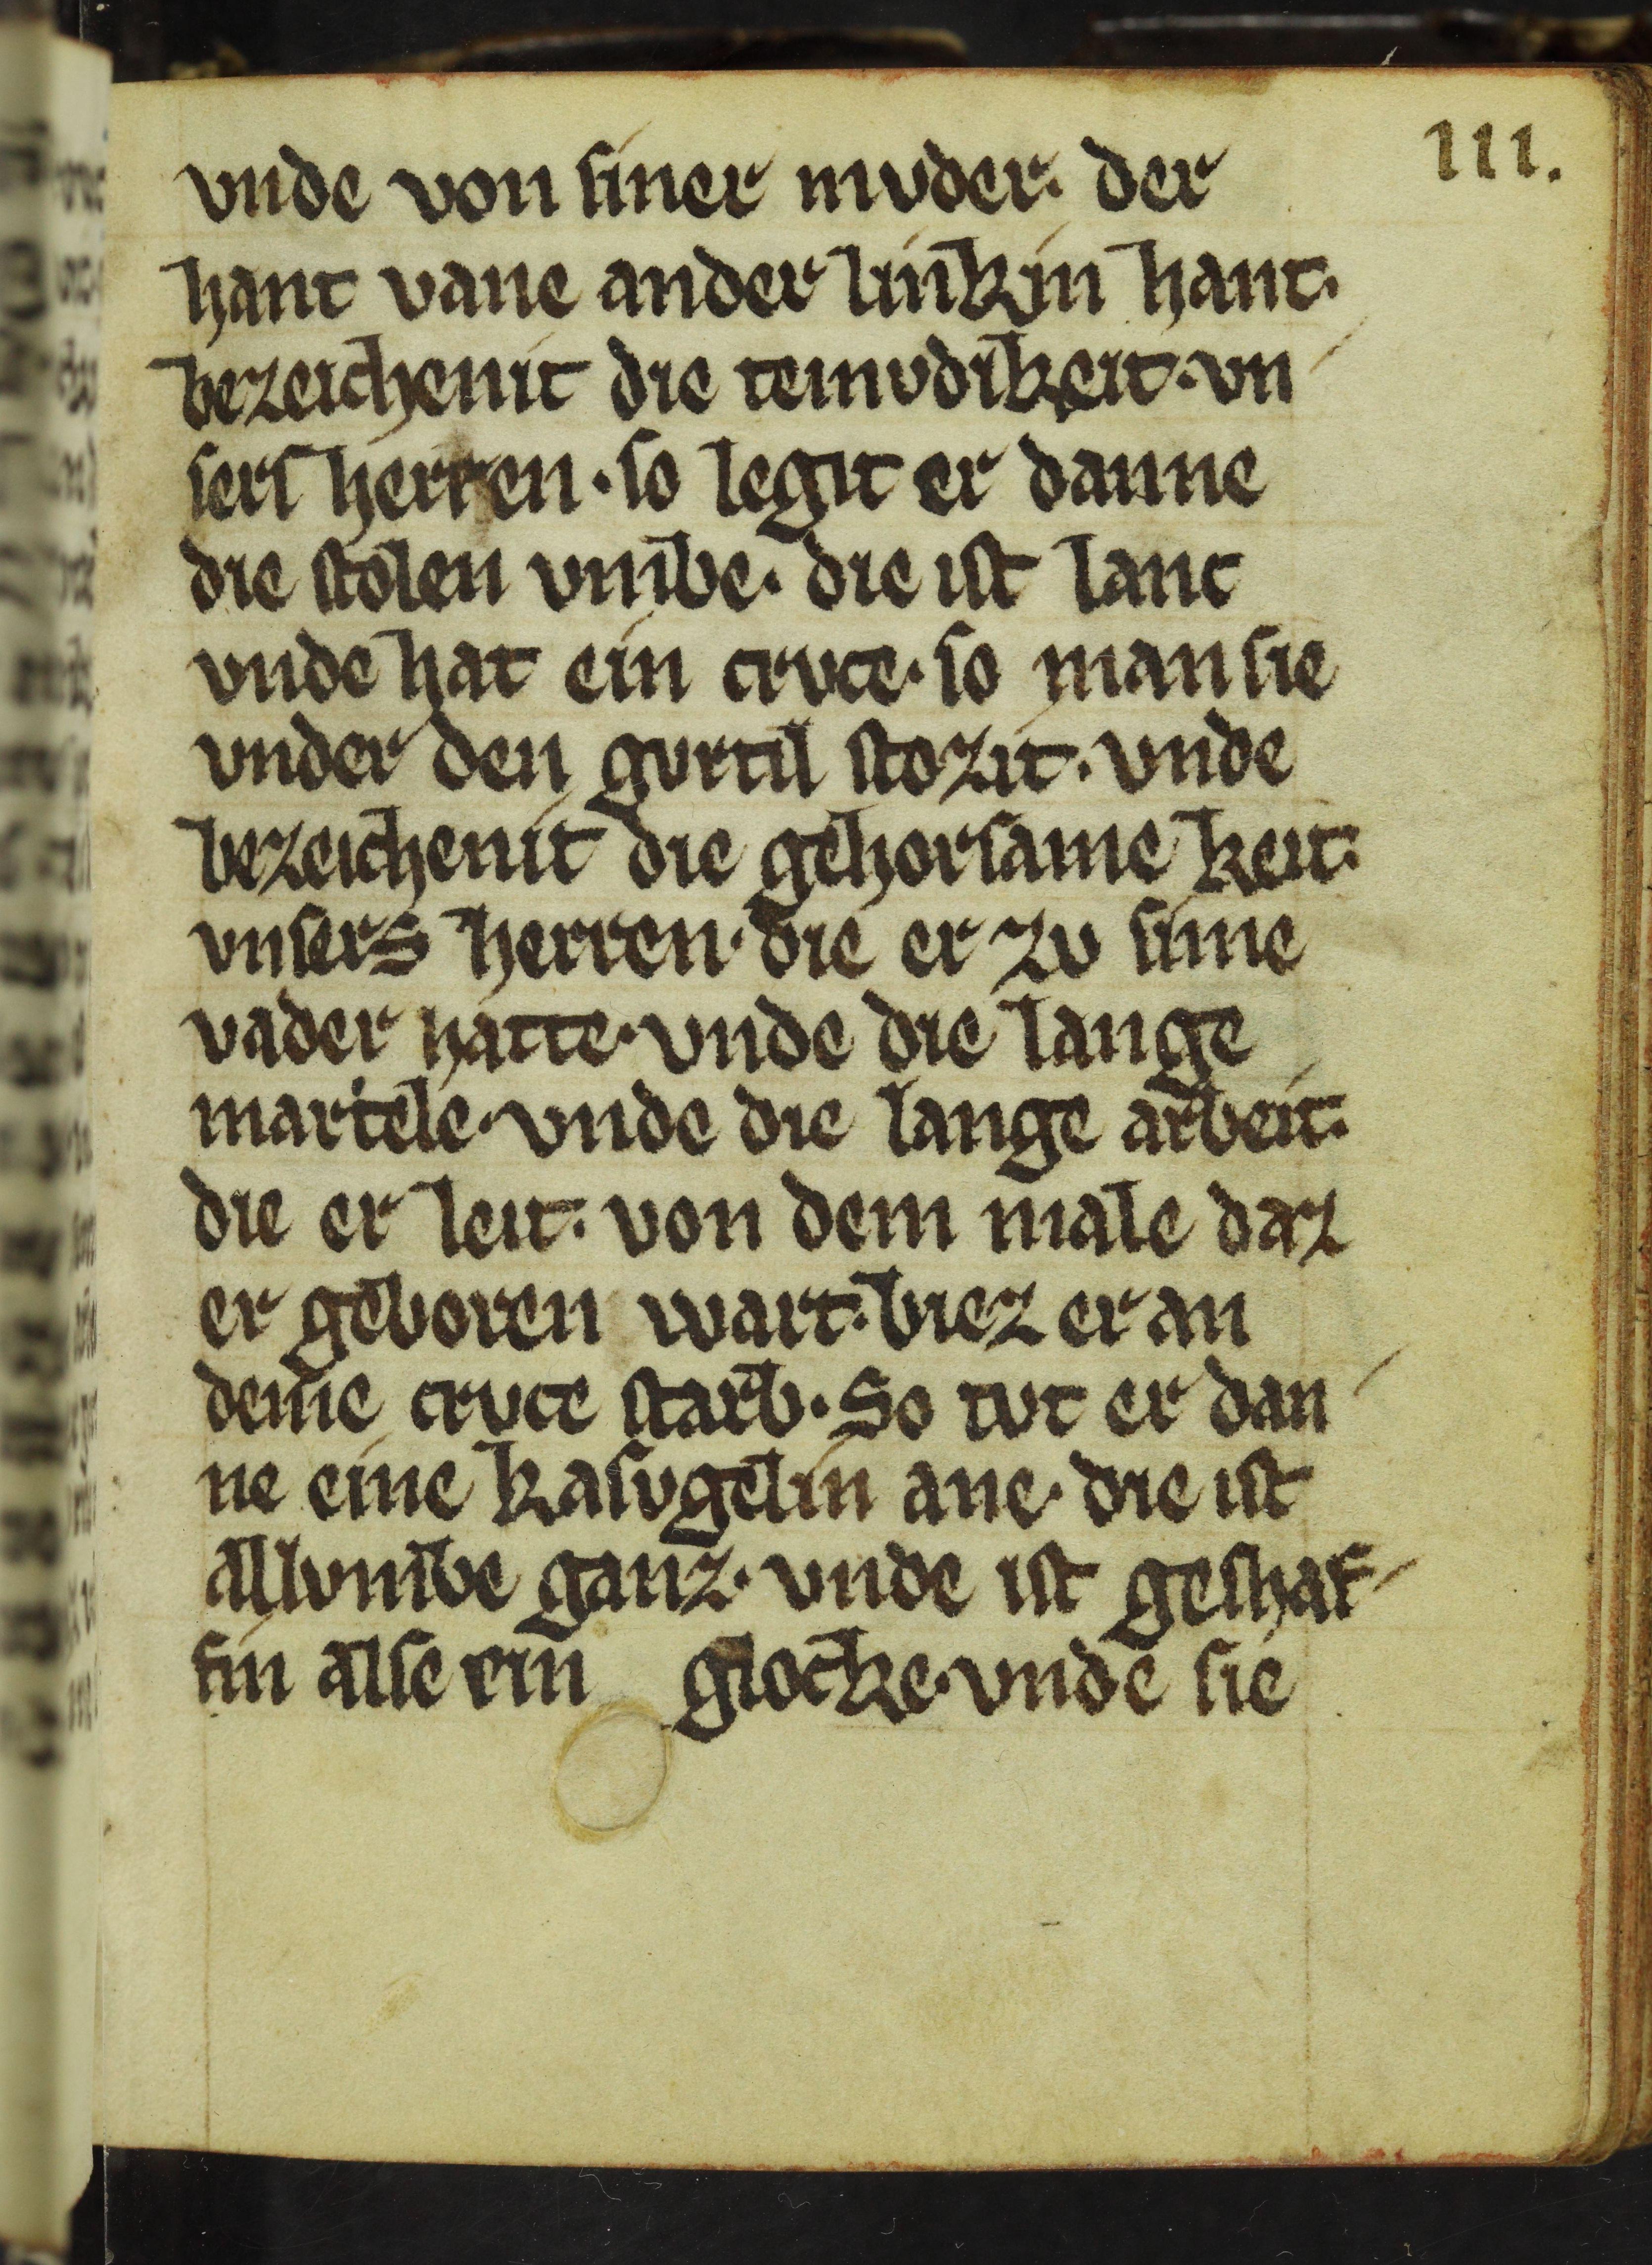 111.
vnde von siner mvder. der
hant vane ander linkin hant.
bezeichenit die temvdikeit. vn
sers herren. so legit er danne
die stolen vmbe. die ist lanc
vnde hat ein cruce. so man sie
vnder den gvrtil stozit. vnde
bezeichenit die gehorsame keit.
vnsers herren. die er zv sime
vader hatte. vnde die lange
martele. vnde die lange arbeit.
die er leit. von dem male daz
er geboren wart. biez er an
deme cruce starb. So tvt er dan
ne eine kasvgelin ane. die ist
allvmbe ganz. vnde ist geshaf
fin alse ein glocke. vnde sie